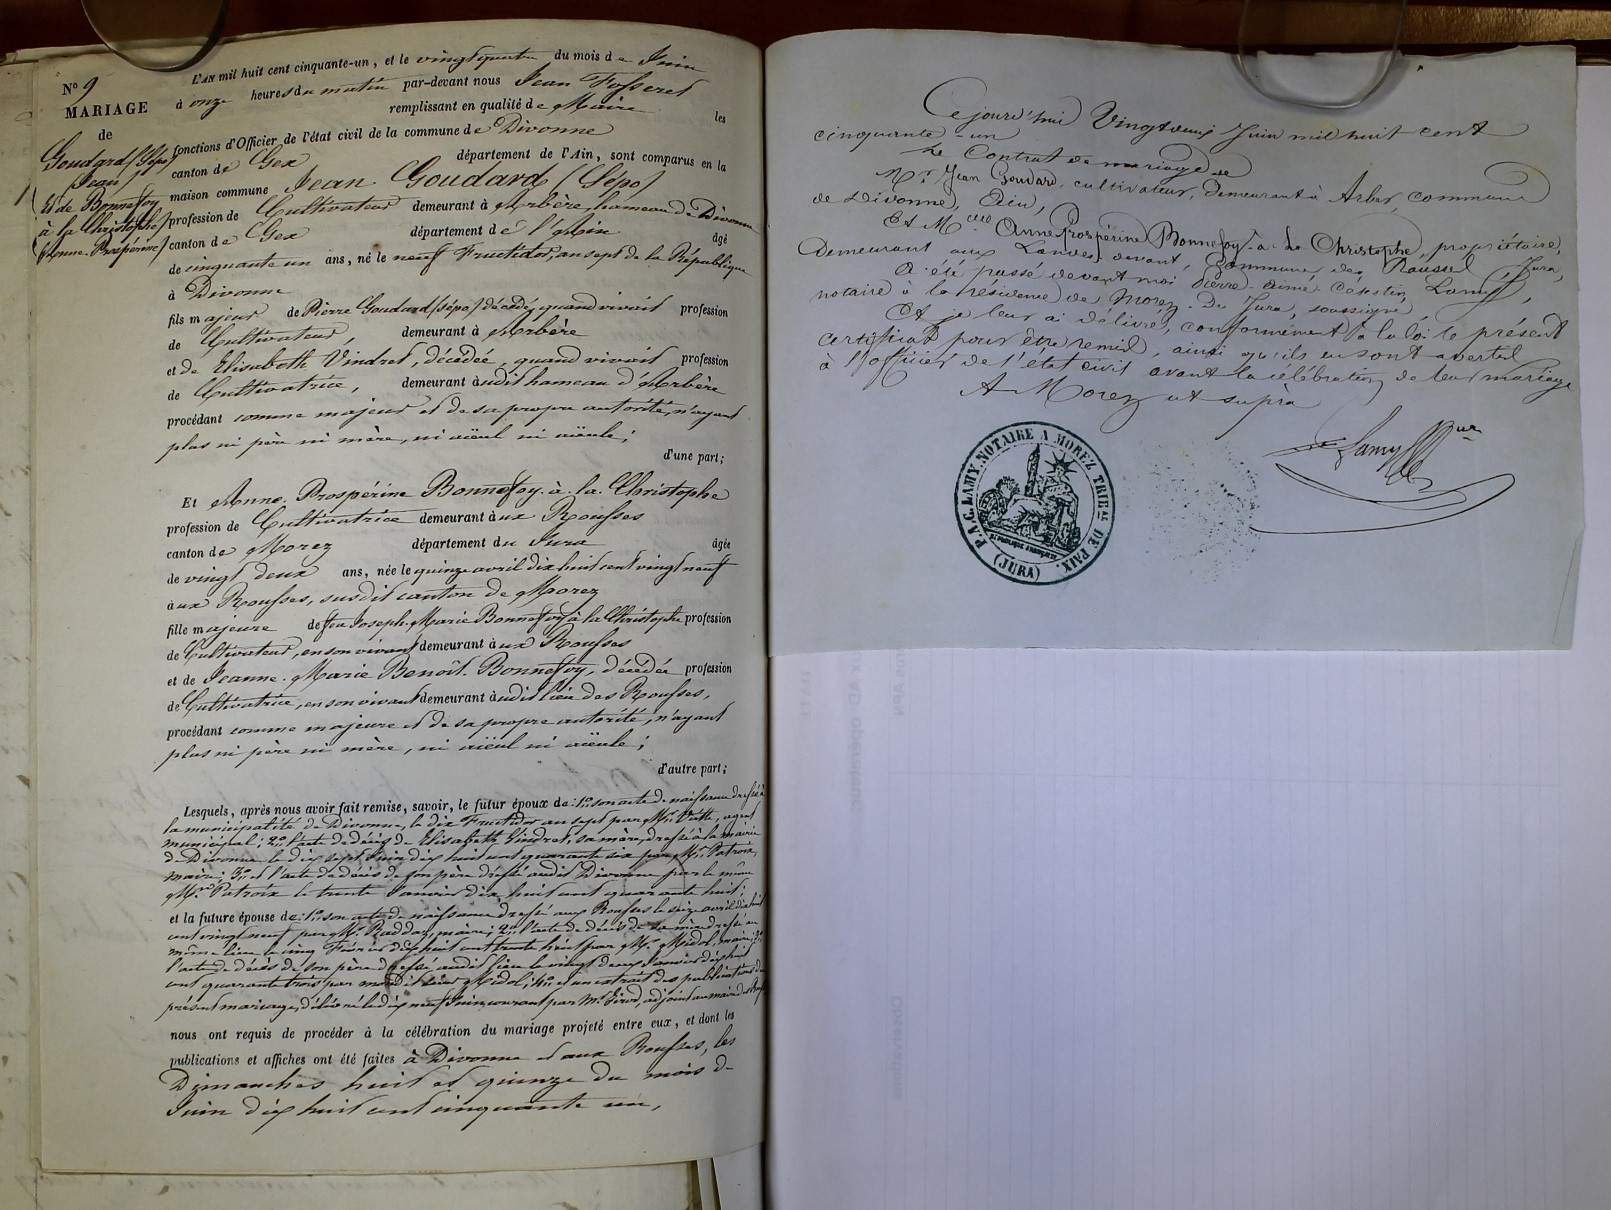 N° 9
MARIAGE
de
Goudard (Sépo)
(Jean)
Et de Bonnefoy
à la Christophe
Anne Prospérine
L'AN mil huit cent cinquante-un, et le vingt quatre du mois de Juin
à onze heures du matin par-devant nous Jean Fosseret
remplissant en qualité de Maire les
fonctions d'Officier de l'état civil de la commune de Divonne
canton de Gex département de l'Ain, sont comparus en la
maison commune Jean Goudard (Sépo)
profession de Cultivateur demeurant à Arbère, hameau de Divonne
canton de Gex département de l'Ain âgé
de cinquante un ans, né le neuf Fructidor, an sept de la République
à Divonne
fils majeur de Pierre Goudard (Sépo) décédé, quand vivait profession
de Cultivateur, demeurant à Arbère
et de Elisabeth Vindret, décédée, quand vivait profession
de Cultivatrice, demeurant audit hameau d'Arbère
procédant comme majeur et de sa propre autorité, n'ayant
plus ni père ni mère, ni aïeul ni aïeule;
d'une part;
Et Anne Prospérine Bonnefoy à la Christophe
profession de Cultivatrice demeurant aux Rousses
canton de Morez département du Jura âgée
de vingt deux ans, née le quinze avril dix huit cent vingt neuf
aux Rousses, susdit canton de Morez
fille majeure de feu Joseph Marie Bonnefoy à la Christophe profession
de Cultivateur, en son vivant demeurant aux Rousses
et de Jeanne Marie Benoît Bonnefoy, décédée profession
de Cultivatrice, en son vivant demeurant audit lieu des Rousses,
procédant comme majeure et de sa propre autorité, n'ayant
plus ni père ni mère, ni aïeul ni aïeule;
d'autre part;
Lesquels, après nous avoir fait remise, savoir, le futur époux de 1° son acte de naissance dressé à
la municipalité de Divonne, le dix Fructidor an sept par Mr. agent
municipal; 2° l'acte de décès de Elisabeth Vindret, sa mère, dressé à la mairie
de Divonne le dix sept Juin dix huit cent quarante six par Mr. Patroix,
maire; 3° et l'acte de décès de son père dressé audit Divonne par le même
Mr. Patroix le trente Janvier dix huit cent quarante huit;
et la future épouse de 1° son acte de naissance dressé aux Rousses le seize avril dix huit
cent vingt neuf par Mr. Raddaz, maire; 2° l'acte de décès de sa mère dressé au
même lieu le cinq Février dix huit cent trente huit par Mr. Midol, maire; 3°
l'acte de décès de son père dressé audit lieu le vingt deux Janvier dix huit
cent quarante trois par mondit sieur Midol; 4° et un extrait des publications du
présent mariage, délivré le dix neuf Juin courant par Mr. Girod, adjoint au maire des Rousses
nous ont requis de procéder à la célébration du mariage projeté entre eux, et dont les
publications et affiches ont été faites à Divonne et aux Rousses, les
Dimanches huit et quinze du mois de
Juin dix huit cent cinquante un,
Cejourd'hui Vingt deux Juin mil huit cent
cinquante un
Le Contrat de mariage de
Mr. Jean Goudard, cultivateur, demeurant à Arber, commune
de Divonne, Ain,
Et Melle Anne Prospérine Bonnefoy-à-la Christophe, propriétaire,
demeurant aux Landes devant, Commune des Rousses Jura,
A été passé devant moi Pierre-Aimé-Célestin Lamy,
notaire à la résidence de Morez-du-Jura, soussigné,
Et je leur ai délivré, conformément à la loi le présent
certificat pour être remis, ainsi qu'ils en sont avertis
à l'officier de l'état civil avant la célébration de leur mariage
A Morez ut suprà
Lamy
P.A.C. LAMY. NOTAIRE A MOREZ. TRIBAL DE PAIX.
RÉPUBLIQUE FRANÇAISE
(JURA)